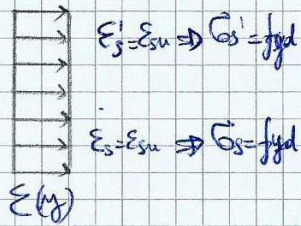 ε's=εsu ⇒ σs'=fyd
εs=εsu ⇒ σs=fyd
ε(y)